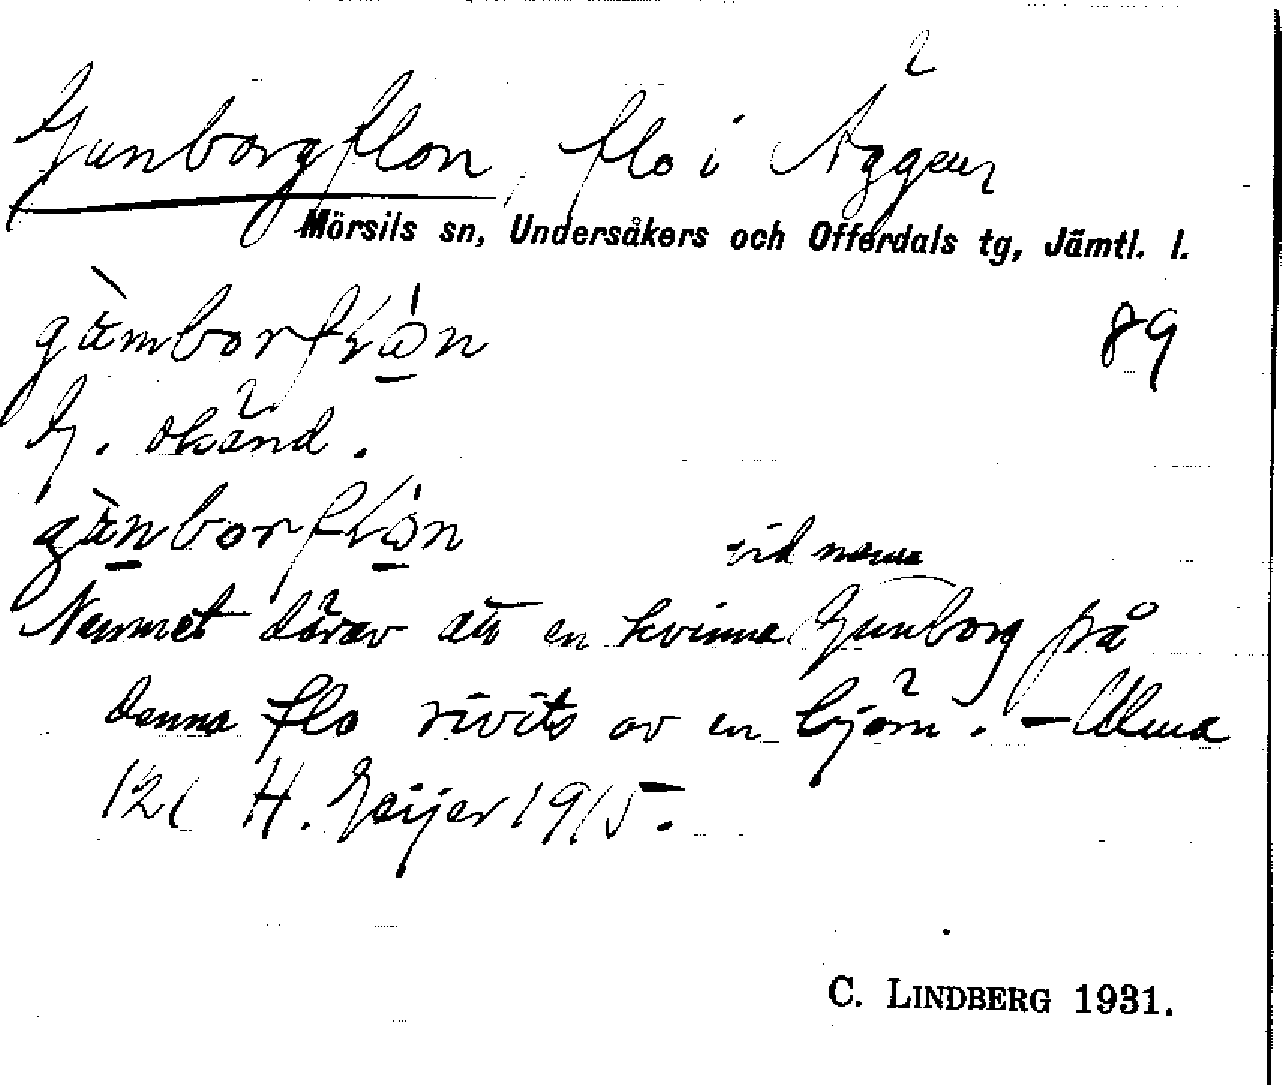 Gunborgflon, flo i Äggen
Mörsils sn, Undersåkers och Offerdals tg, Jämtl. l.
gàmborflón 89
G. okänd.
gànborflón
vid namn
Namnet därav att en kvinna Gunborg på
denna flo rivits av en björn. – Alma
121 H. Geijer 1915.
C. LINDBERG 1931.